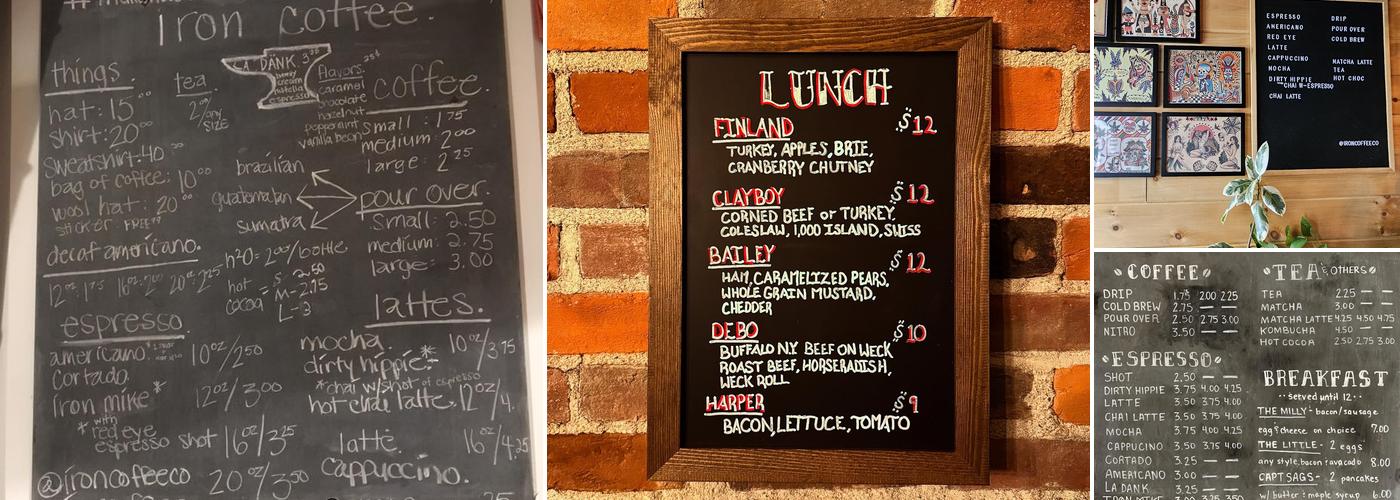 Iron coffee.
things.
hat: 15.00
shirt: 20.00
sweatshirt: 40.00
bag of coffee: 10.00
wool hat: 20.00
sticker: FREE
tea
2.00/any
SIZE
LA DANK 3
nutella
espresso
flavors.
caramel
chocolate
hazelnut
peppermint
vanilla bean
coffee.
small: 1.75
medium: 2.00
large: 2.25
brazilian
guatemalan
sumatra
pour over.
small: 2.50
medium: 2.75
large: 3.00
decaf americano.
h2o= 2.00/bottle.
hot
cocoa =
S-2.50
M-2.75
L-3
espresso.
americano.
cortado.
iron mike*
*with
red eye
espresso shot
10oz/2.50
12oz/3.00
16oz/3.25
20oz/3.50
@ironcoffeeco
lattes.
mocha.
dirty hippie.*
*chai w/shot of espresso
hot chai latte.
latte
cappuccino.
10oz/3.75
12oz/4.
16oz/4.25
LUNCH
FINLAND $12
TURKEY, APPLES, BRIE,
CRANBERRY CHUTNEY
CLAYBOY $12
CORNED BEEF or TURKEY,
COLESLAW, 1,000 ISLAND, SWISS
BAILEY $12
HAM, CARAMELIZED PEARS,
WHOLE GRAIN MUSTARD,
CHEDDER
DEBO $10
BUFFALO NY BEEF ON WECK
ROAST BEEF, HORSERADISH,
WECK ROLL
HARPER $9
BACON, LETTUCE, TOMATO
ESPRESSO
AMERICANO
RED EYE
LATTE
CAPPUCCINO
MOCHA
DIRTY HIPPIE
**CHAI W-ESPRESSO
CHAI LATTE
DRIP
POUR OVER
COLD BREW
MATCHA LATTE
TEA
HOT CHOC
@IRONCOFFEECO
COFFEE
DRIP 1.75 2.00 2.25
COLD BREW 2.75 — —
POUR OVER 2.50 2.75 3.00
NITRO 3.50 — —
ESPRESSO
SHOT 2.50 — —
DIRTY HIPPIE 3.75 4.00 4.25
LATTE 3.50 3.75 4.00
CHAI LATTE 3.50 3.75 4.00
MOCHA 3.75 4.00 4.25
CAPPUCINO 3.50 3.75 4.00
CORTADO 3.25 — —
AMERICANO 3.00 — —
LA DANK 3.25 — —
IRON MIKE 3.00 3.25 3.50
TEA & OTHERS
TEA 2.25 — —
MATCHA 3.00 — —
MATCHA LATTE 4.25 4.50 4.75
KOMBUCHA 4.50 — —
HOT COCOA 2.50 2.75 3.00
BREAKFAST
served until 12
THE MILLY - bacon/sausage
egg & cheese on choice 7.00
THE LITTLE - 2 eggs
any style, bacon & avocado 8.00
CAPT SAGS - 2 pancakes
w/butter & maple syrup 6.00